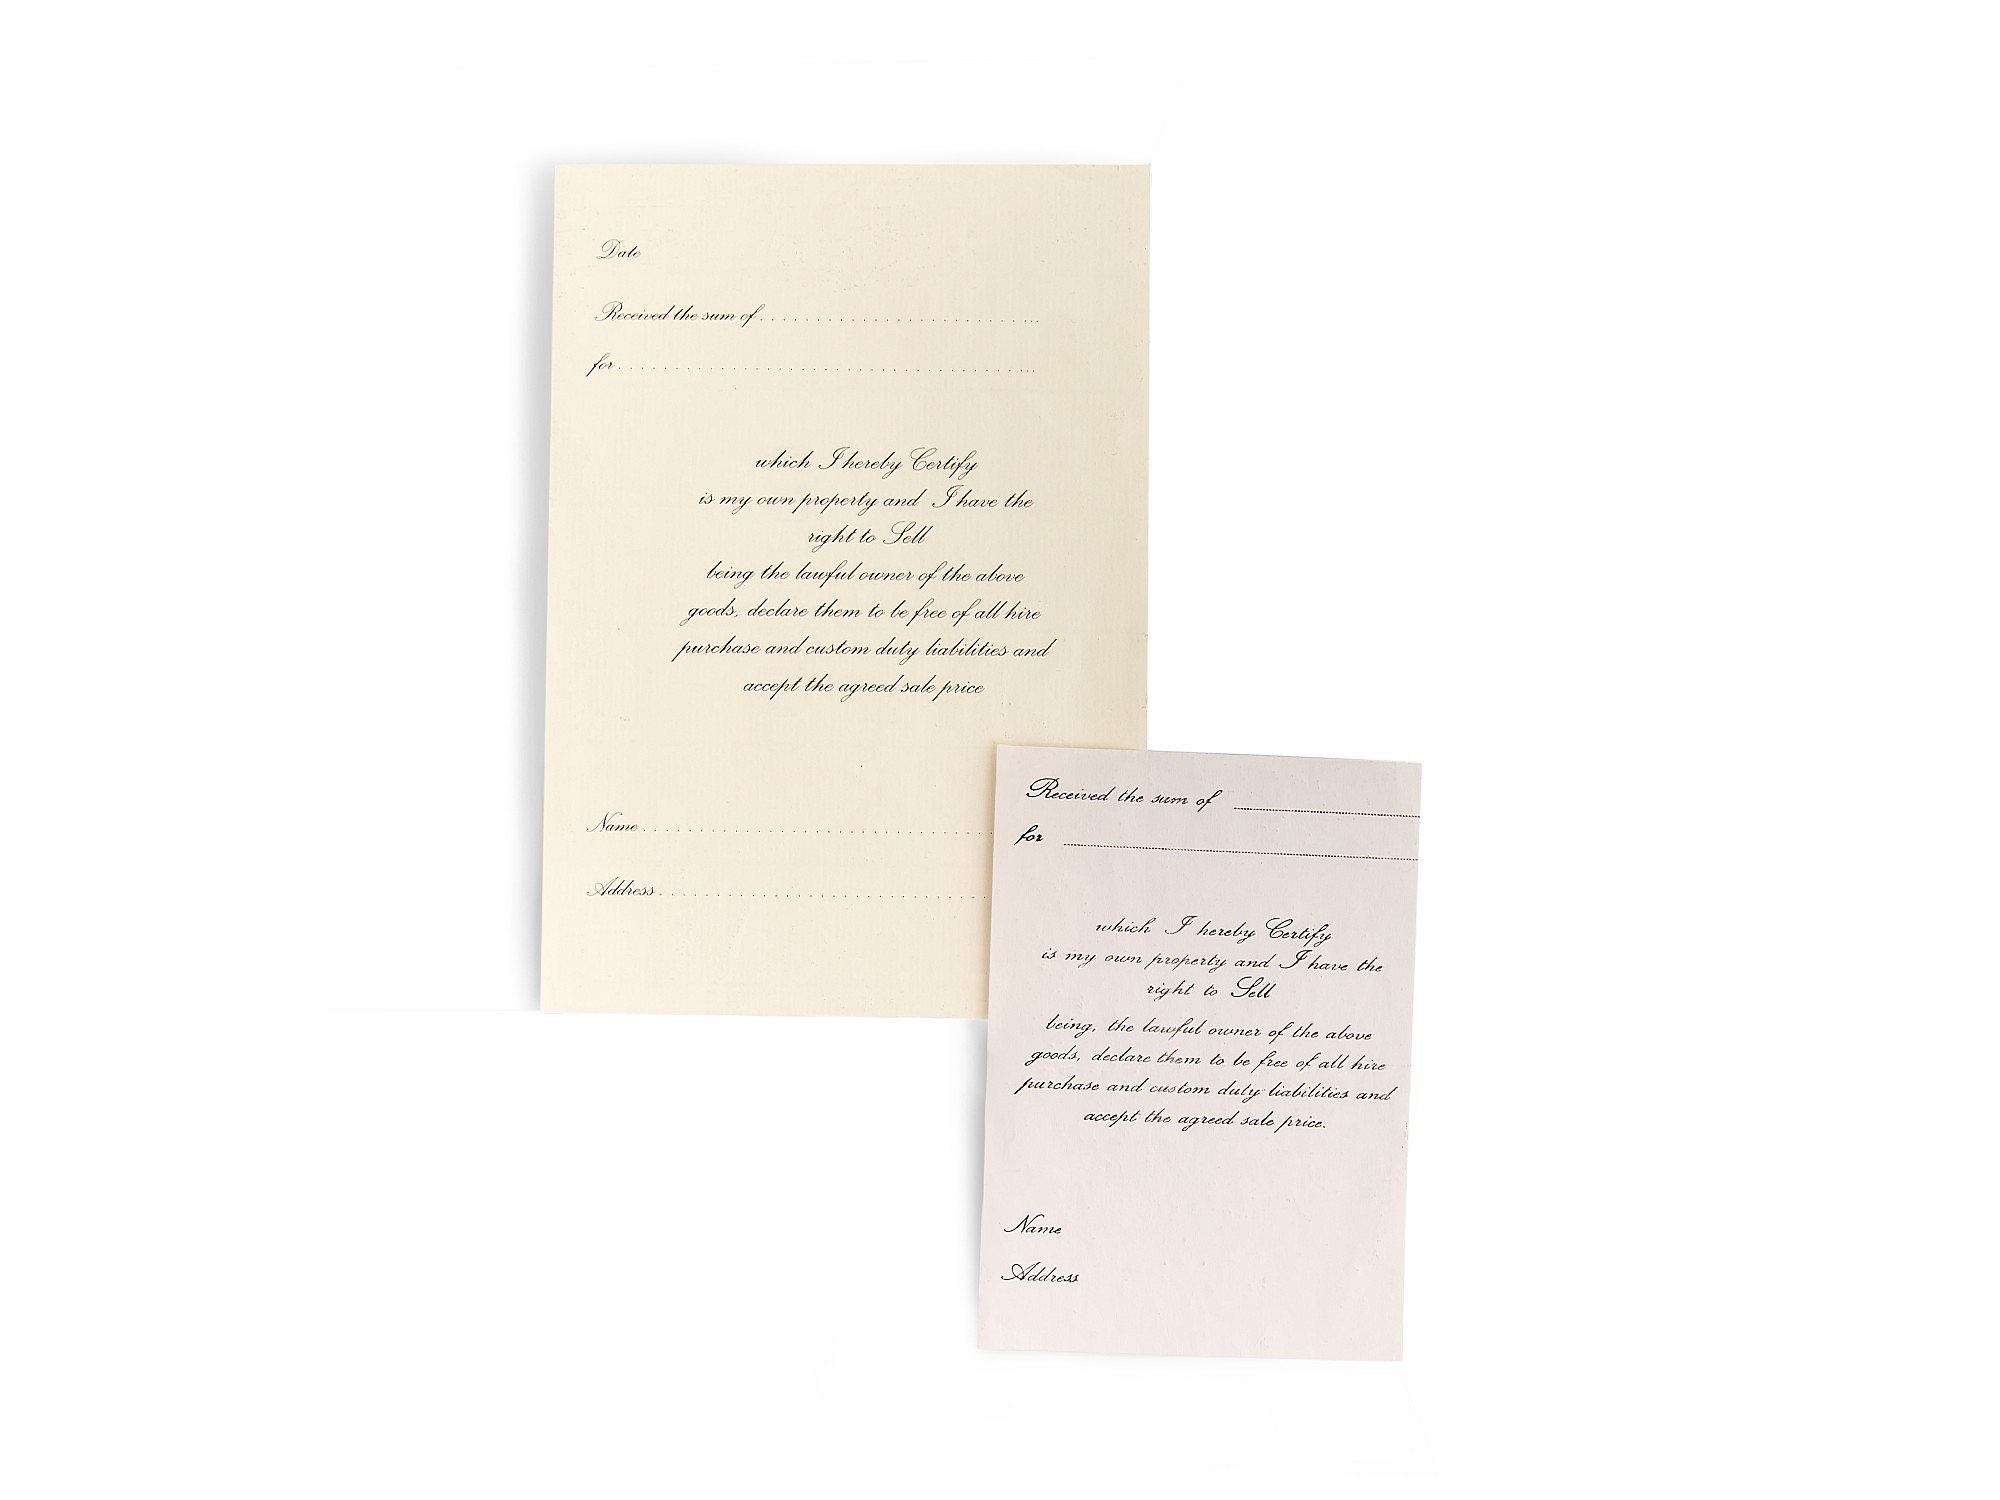 Date
Received the sum of..............................
for..............................
which I hereby Certify
is my own property and I have the
right to Sell
being the lawful owner of the above
goods, declare them to be free of all hire
purchase and custom duty liabilities and
accept the agreed sale price
Name..............................
Address..............................
Received the sum of ..............................
for ..............................
which I hereby Certify
is my own property and I have the
right to Sell
being, the lawful owner of the above
goods, declare them to be free of all hire
purchase and custom duty liabilities and
accept the agreed sale price.
Name
Address